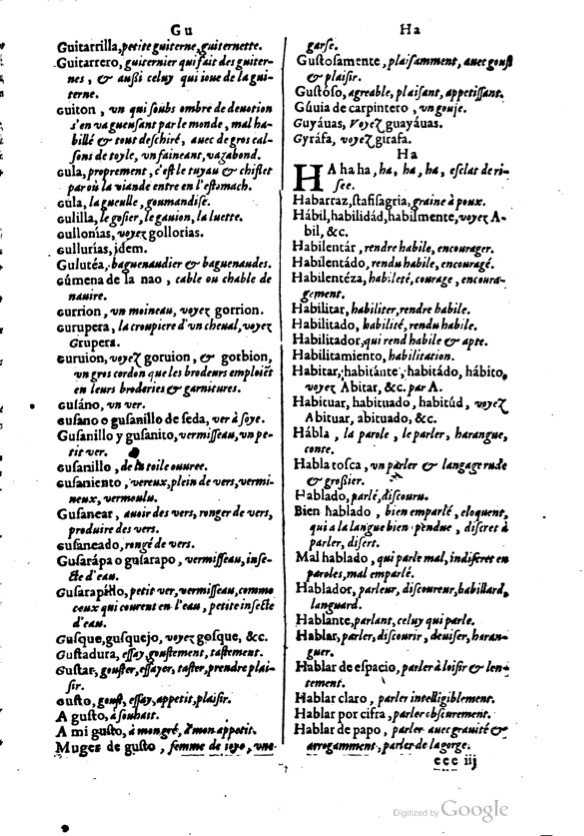 Gu
Guitarrilla, petite guiterne, guiternette.
Guitarrero, guiternier qui fait des guiter-
nes, & außi celuy qui ioue de la gui-
terne.
Guiton, vn qui soubs ombre de deuotion
s'en va gueusant par le monde, mal ha-
billé & tout deschiré, auec de gros cal-
sons de toyle, vn faineant, vagabond.
Gula, proprement, c'est le tuyau & chiflet
par où la viande entre en l'estomach.
Gula, la gueulle, goumandise.
Gulilla, le gosier, le gauion, la luette.
Gullonías, voyez gollorias.
Gullurías, idem.
Gulutéa, baguenaudier & baguenaudes.
Gúmena de la nao, cable ou chable de
nauire.
Gurrion, vn moineau, voyez gorrion.
Gurupera, la croupiere d'un cheual, voyez
Grupera.
Guruion, voyez goruion, & gorbion,
vn gros cordon que les brodeurs emploiēt
en leurs broderies & garnitures.
Gusáno, vn ver.
Gusano o gusanillo de seda, ver à soye.
Gusanillo y gusanito, vermisseau, vn pe-
tit ver.
Gusanillo, de la toile ouuree.
Gusaniento, vereux, plein de vers, vermi-
neux, vermoulu.
Gusanear, auoir des vers, ronger de vers,
produire des vers.
Gusaneado, rongé de vers.
Gusarápa o gusarapo, vermisseau, inse-
cte d'eau.
Gusarapillo, petit ver, vermisseau, comme
ceux qui courent en l'eau, petite insecte
d'eau.
Gusque, gusquejo, voyez gosque, &c.
Gustadura, essay, goustement, tastement.
Gustar, gouster, essayer, taster, prendre plai-
sir.
Gusto, goust, essay, appetit, plaisir.
A gusto, à souhait.
A mi gusto, à mon gré, à mon appetit.
Muges de gusto, femme de ioye, vne
Ha
garse.
Gustosamente, plaisamment, auec goust
& plaisir.
Gustóso, agreable, plaisant, appetissant.
Gúuia de carpintero, vn gouje.
Guyáuas, Voyez guayáuas.
Gyráfa, voyez girafa.
Ha
HA ha ha, ha, ha, ha, esclat de ri-
see.
Habarraz, stafisagria, graine à poux.
Hábil, habilidád, habilmente, voyez A-
bil, &c.
Habilentár, rendre habile, encourager.
Habilentádo, rendu habile, encouragé.
Habilentéza, habileté, courage, encoura-
gement.
Habilitar, habiliter, rendre habile.
Habilitado, habilité, rendu habile.
Habilitador, qui rend habile & apte.
Habilitamiento, habilitation.
Habitar, habitánte, habitádo, hábito,
voyez Abitar, &c. par A.
Habituar, habituado, habitúd, voyez
Abituar, abituado, &c.
Hábla, la parole, le parler, harangue,
conte.
Habla tosca, vn parler & langage rude
& grossier.
Hablado, parlé, discouru.
Bien hablado, bien emparlé, eloquent,
qui a la langue bien pendue, discret à
parler, disert.
Mal hablado, qui parle mal, indiscret en
paroles, mal emparlé.
Hablador, parleur, discoureur, babillard,
languard.
Hablante, parlant, celuy qui parle.
Hablar, parler, discourir, deuiser, haran-
guer.
Hablar de espacio, parler à loisir & len-
tement.
Hablar claro, parler intelligiblement.
Hablar por cifra, parler obscurement.
Hablar de papo, parler auec grauité &
arrogamment, parler de la gorge.
ccc iij
Digitized by Google